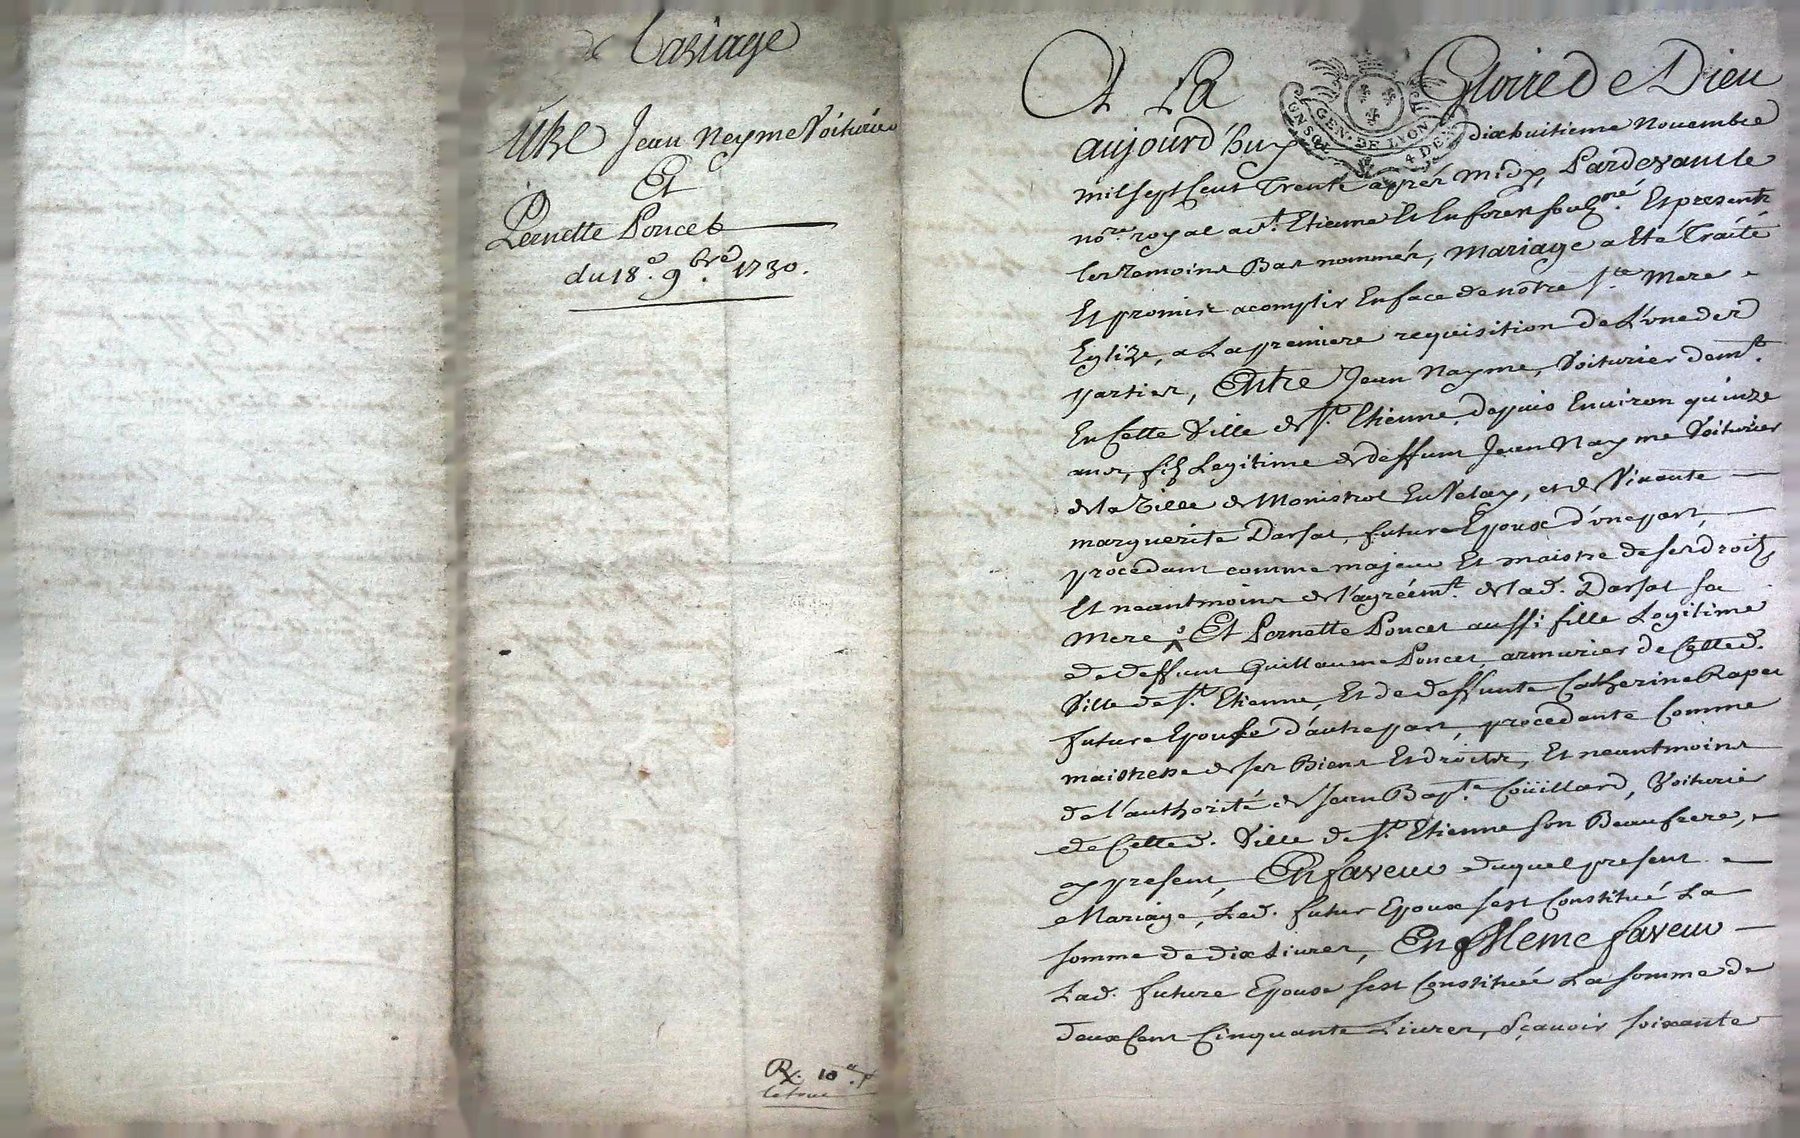 de Cariage
Entre Jean Neyme Voiturier
Et
Pernette Poncet
du 18e. 9bre. 1730.
Rx. 10
A La Gloire de Dieu
GEN. DE LYON
4 DEN
aujourd'huy dixhuitieme Novembre
mil sept Cent Trente apres midy, Pardevant le
nore. royal a St. Etienne Et En forez soubzné. Et presents
les Temoins Bas nommés, Mariage a Eté Traité
Et promis acomplir En face de nôtre Ste. Mere
Eglize, a La premiere requisition de L'vne des
parties, Entre Jean Nayme, Voiturier demt.
En Cette Ville de St. Etienne, depuis Environ quinze
ans, filz Legitime de deffunt Jean Nayme Voiturier
de la Ville de Monistrol En Velay, et de Vivante
marguerite Darsat, future Epoux d'vne part,
procedant comme majeur Et maistre de ses droitz
Et neantmoins de l'agréemt. de lad. Darsat sa
mere, Et Pernette Poncet aussi fille Legitime
de deffunt Guillaume Poncet, armurier de Cetted.
Ville de St. Etienne, Et de deffunte Catherine Rapet
future Epouse d'autre part, procedante Comme
maistresse de ses Biens Et droits, Et neantmoins
de l'authorité de Jean Bapte. Coüillard, Voiturier
de Cetted. Ville de St. Etienne son Beaufrere,
a present, En faveur duquel present
Mariage, Led. futur Epoux s'est Constitué La
somme de dix Livres, En Meme faveur
Lad. future Epouse s'est Constituée La somme de
deux Cent Cinquante Livres, Sçavoir soixante